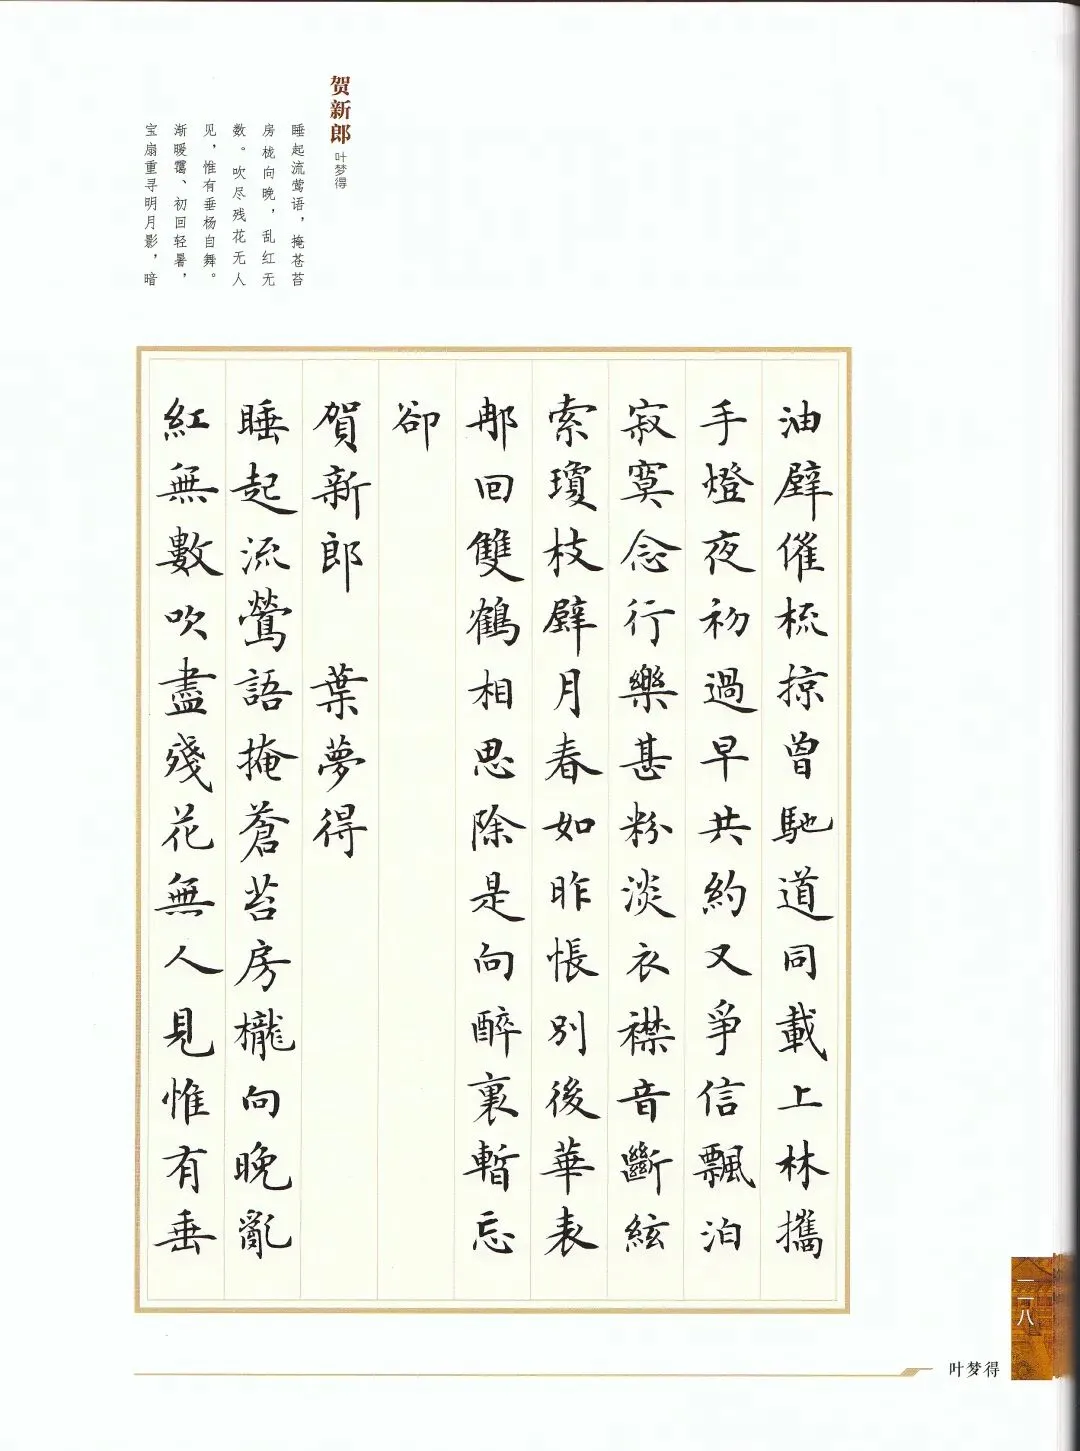 贺新郎 叶梦得
睡起流莺语，掩苍苔
房栊向晚，乱红无
数。吹尽残花无人
见，惟有垂杨自舞。
渐暖霭、初回轻暑，
宝扇重寻明月影，暗
油壁催梳掠曾馳道同載上林攜
手燈夜初過早共約又爭信飄泊
寂寞念行樂甚粉淡衣襟音斷絃
索瓊枝璧月春如昨悵別後華表
那回雙鶴相思除是向醉裏暫忘
卻
賀新郎 葉夢得
睡起流鶯語掩蒼苔房櫳向晚亂
紅無數吹盡殘花無人見惟有垂
一一八
叶梦得